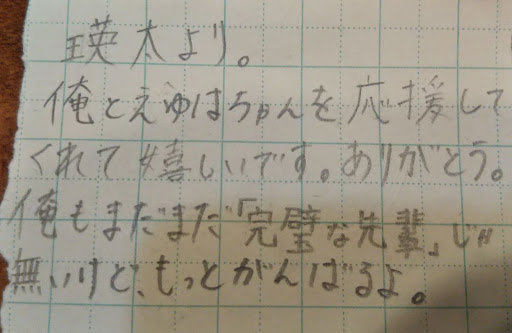 瑛太より。
俺とえゆはちゃんを応援して
くれて嬉しいです。ありがとう。
俺もまだまだ「完璧な先輩」じゃ
無いけど、もっとがんばるよ。